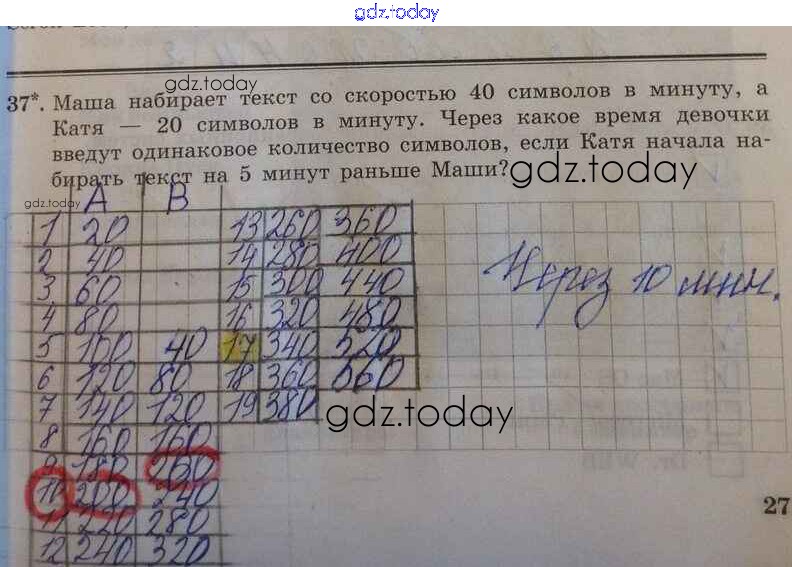 gdz.today
gdz.today
37*. Маша набирает текст со скоростью 40 символов в минуту, а
Катя — 20 символов в минуту. Через какое время девочки
введут одинаковое количество символов, если Катя начала на-
бирать текст на 5 минут раньше Маши?
gdz.today
gdz.today
A B
1 20 13 260 360
2 40 14 280 400
3 60 15 300 440
4 80 16 320 480
5 100 40 17 340 520
6 120 80 18 360 560
7 140 120 19 380
8 160 160
9 180 200
10 200 240
11 220 280
12 240 320
Через 10 мин.
gdz.today
27